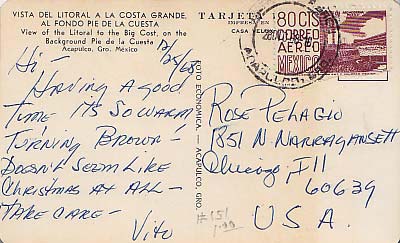 VISTA DEL LITORAL A LA COSTA GRANDE,
AL FONDO PIE DE LA CUESTA
View of the Litoral to the Big Cost, on the
Background Pie de la Cuesta
Acapulco, Gro. México
12/25/68
Hi-
Having a good
time its so warm,
turning brown-
Doesn't seem like
Christmas at all-
Take care-
Vito
FOTO ECONOMICA. - ACAPULCO, GRO.
TARJETA
IMPRESA EN
CASA
80 CTS
CORREO
AEREO
MEXICO
ACAPULCO, GRO.
Rose Pelagio
1851 N Narragansett
Chicago Ill
60639
USA.
#151
1.00